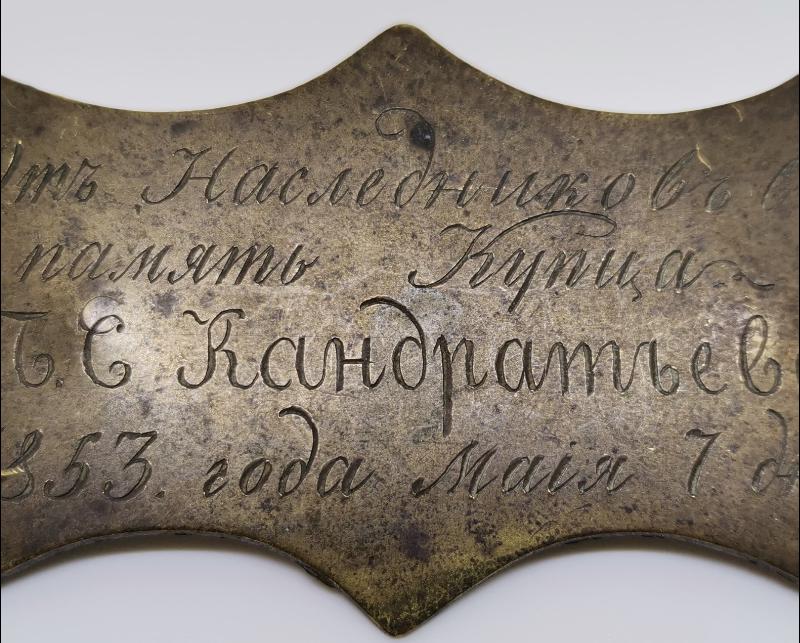 Отъ Наследниковъ в
память Купца
П.С Кандратьев
1853. года Маія 7. д